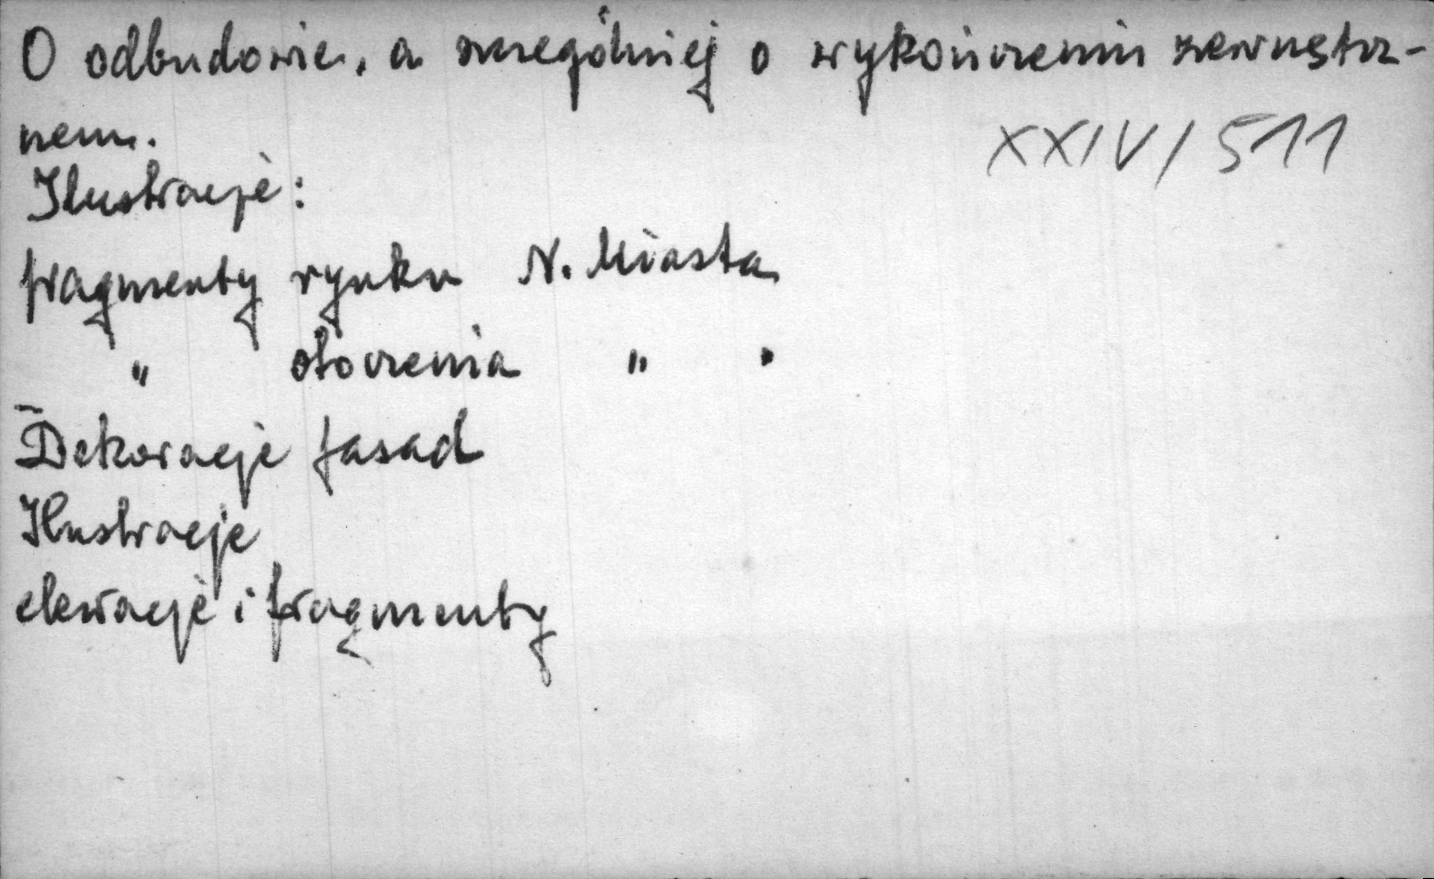 O odbudowie, a szczególniej o wykończeniu zewnętrz-
nem.
XXIV/511
Ilustracje:
fragmenty rynku N. Miasta
" otoczenia " "
Dekoracje fasad
Ilustracje
elewacje i fragmenty